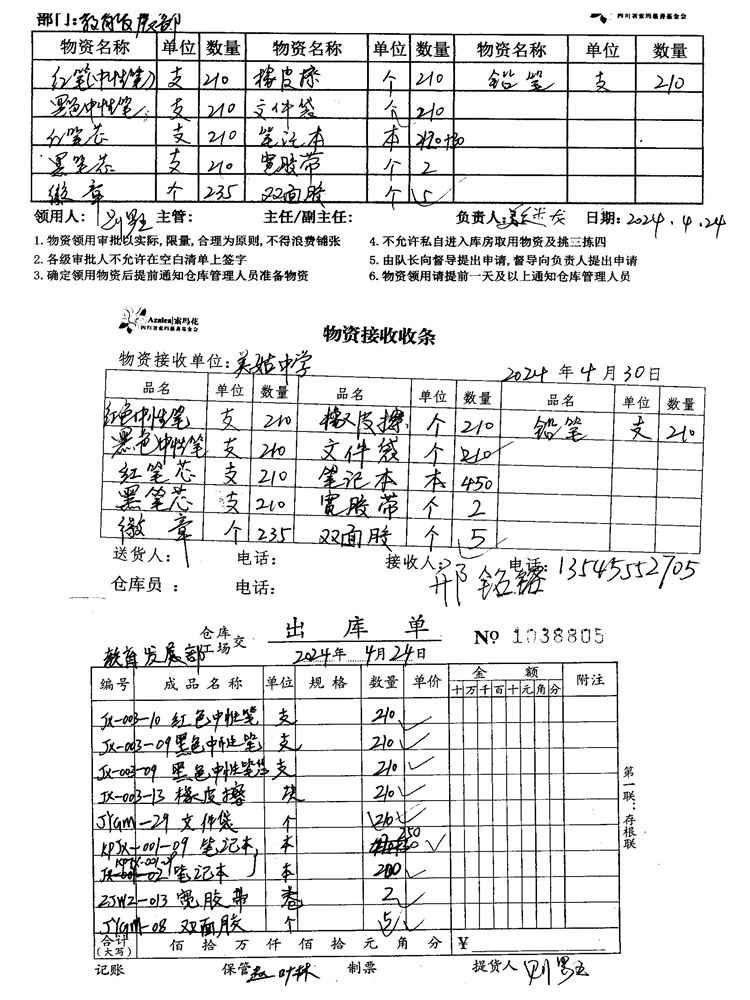 部门:教育发展部 四川省索玛慈善基金会
物资名称 单位 数量 物资名称 单位 数量 物资名称 单位 数量
红笔(中性笔) 支 210 橡皮擦 个 210 铅笔 支 210
黑色中性笔 支 210 文件袋 个 210
红笔芯 支 210 笔记本 本
黑笔芯 支 210 宽胶带 个 2
徽章 个 235 双面胶 个 5
领用人: 主管: 主任/副主任: 负责人: 日期:2024.4.24
1.物资领用审批以实际,限量,合理为原则,不得浪费铺张 4.不允许私自进入库房取用物资及挑三拣四
2.各级审批人不允许在空白清单上签字 5.由队长向督导提出申请,督导向负责人提出申请
3.确定领用物资后提前通知仓库管理人员准备物资 6.物资领用请提前一天及以上通知仓库管理人员
Azalea|索玛花
四川省索玛慈善基金会
物资接收收条
物资接收单位:美姑中学 2024年4月30日
品名 单位 数量 品名 单位 数量 品名 单位 数量
红色中性笔 支 210 橡皮擦 个 210 铅笔 支 210
黑色中性笔 支 210 文件袋 个 210
红笔芯 支 210 笔记本 本 450
黑笔芯 支 210 宽胶带 个 2
徽章 个 235 双面胶 个 5
送货人: 电话: 接收人: 电话:13545552705
仓库员: 电话:
出库单
教育发展部 仓库工场交 2024年4月24日 № 1038805
编号 成品名称 单位 规格 数量 单价 金额 附注
十万千百十元角分
JX-003-10 红色中性笔 支 210
JX-003-09 黑色中性笔 支 210
JX-003-09 黑色中性笔 支 210
JX-003-13 橡皮擦 块 210
JYGM-29 文件袋 个 210
KPJX-001-09 笔记本 本 250
笔记本 本 200
ZJWZ-013 宽胶带 卷 2
JYGM-08 双面胶 个 5
合计(大写) 佰拾万仟佰拾元角分 ¥
记账 保管 赵叶林 制票 提货人
第一联:存根联